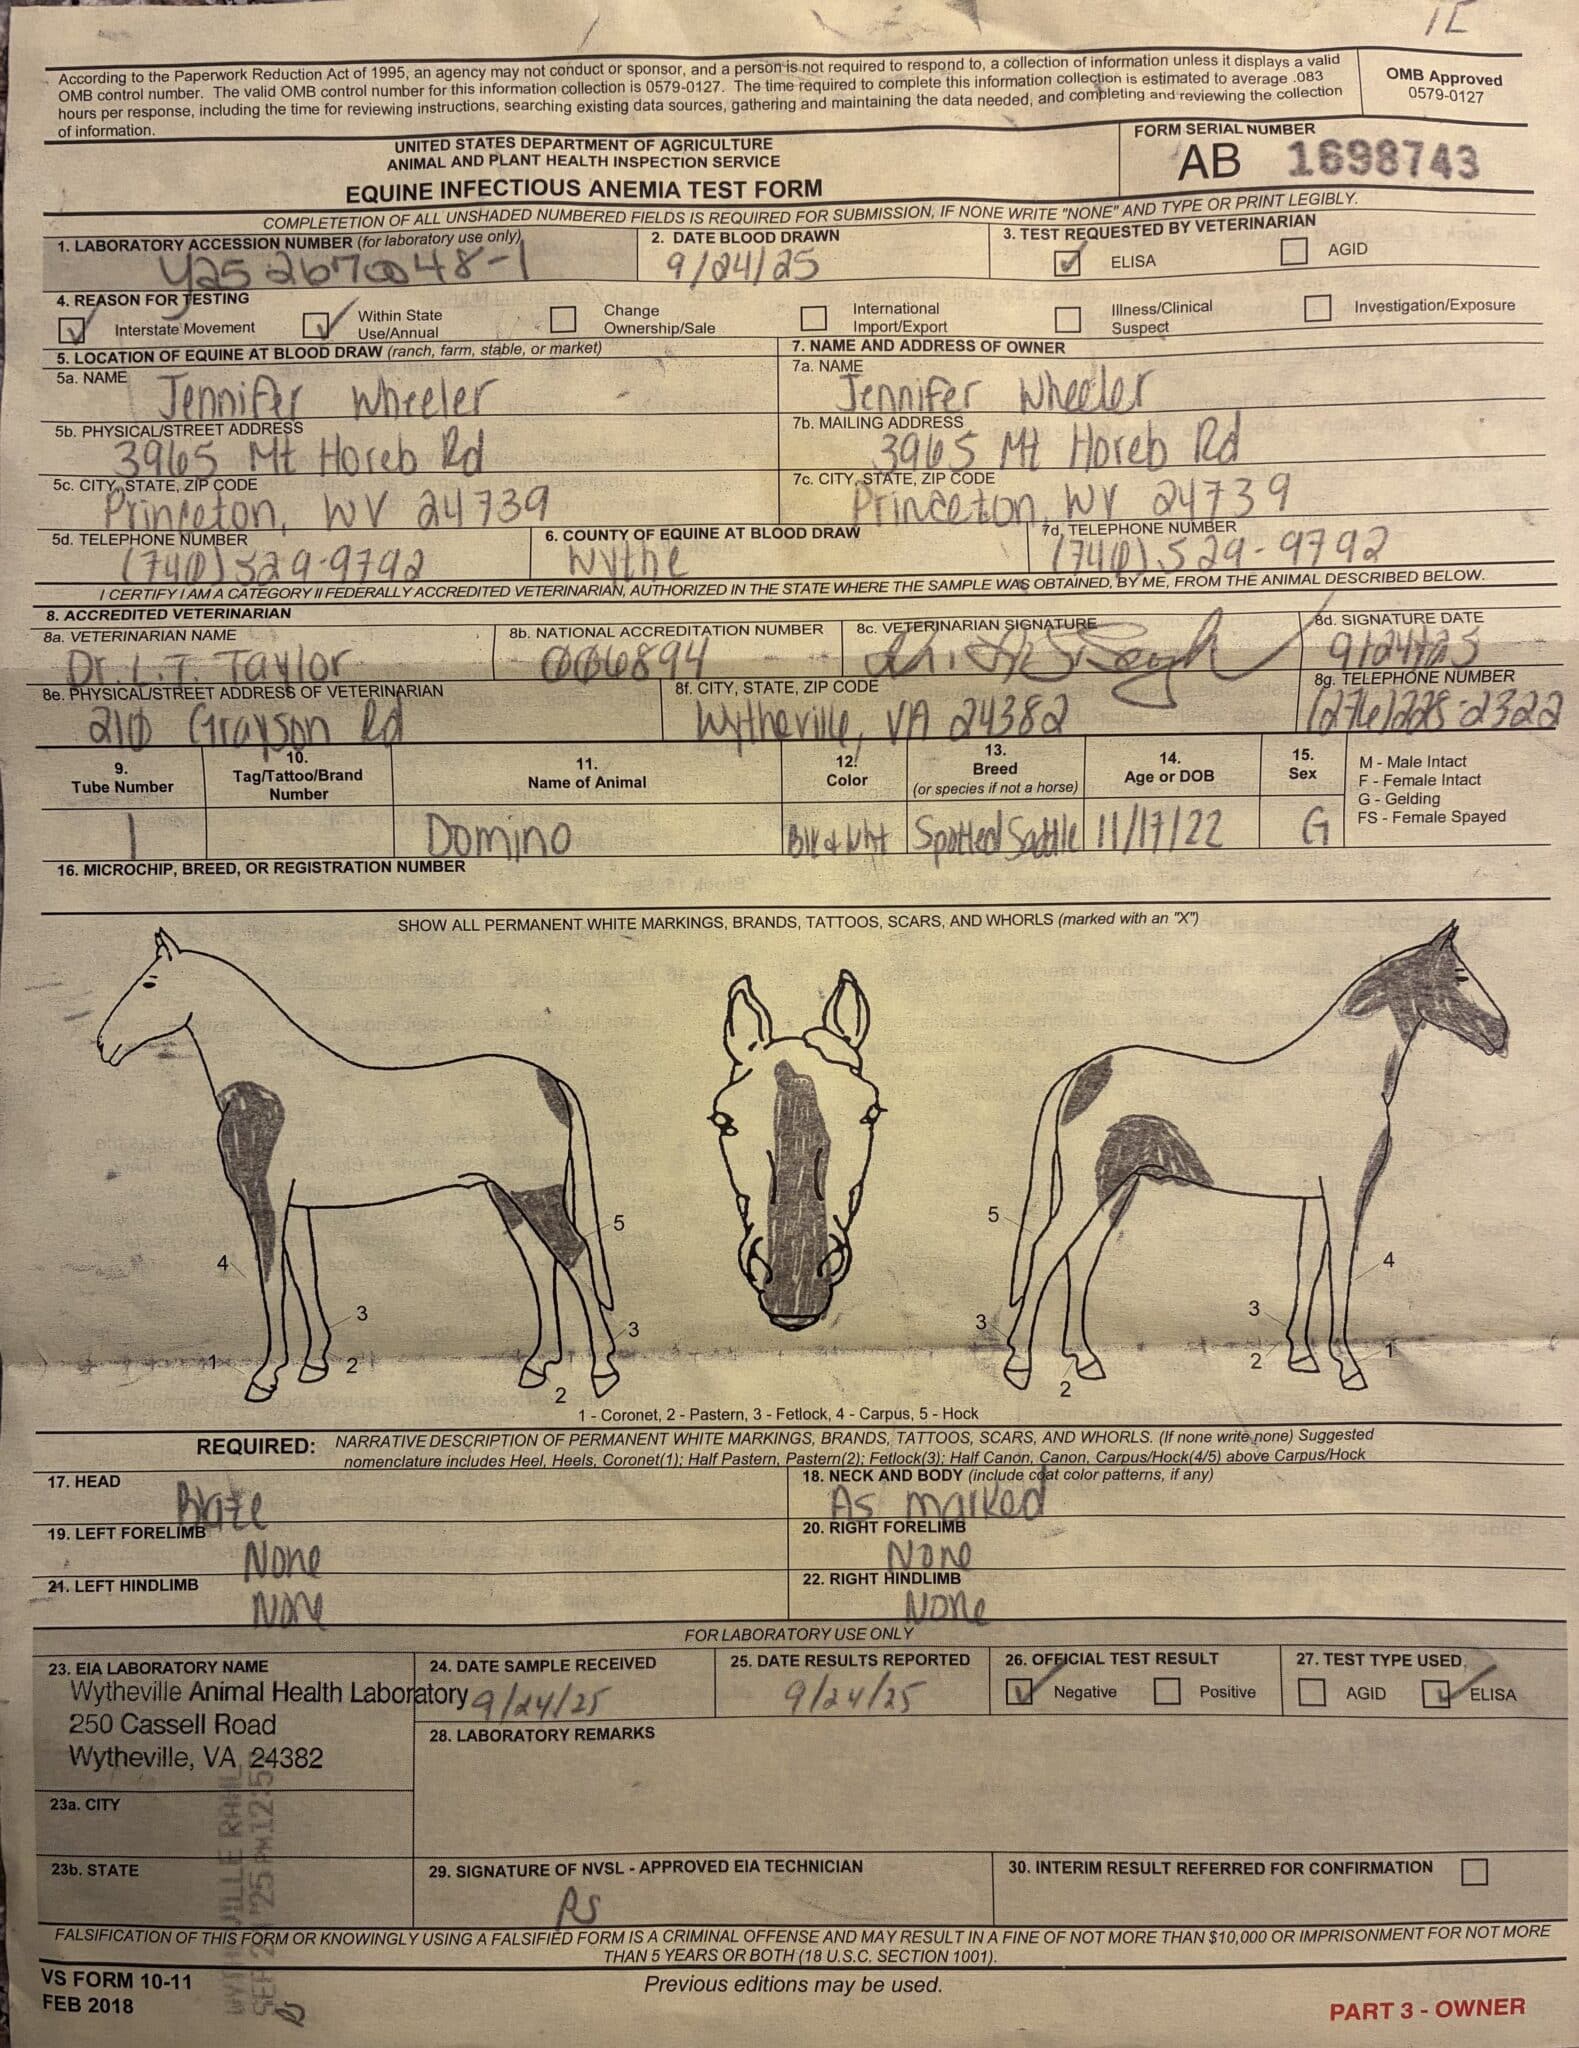 According to the Paperwork Reduction Act of 1995, an agency may not conduct or sponsor, and a person is not required to respond to, a collection of information unless it displays a valid
OMB control number. The valid OMB control number for this information collection is 0579-0127. The time required to complete this information collection is estimated to average .083
hours per response, including the time for reviewing instructions, searching existing data sources, gathering and maintaining the data needed, and completing and reviewing the collection
of information.
OMB Approved
0579-0127
UNITED STATES DEPARTMENT OF AGRICULTURE
ANIMAL AND PLANT HEALTH INSPECTION SERVICE
EQUINE INFECTIOUS ANEMIA TEST FORM
FORM SERIAL NUMBER
AB 1698743
COMPLETETION OF ALL UNSHADED NUMBERED FIELDS IS REQUIRED FOR SUBMISSION, IF NONE WRITE "NONE" AND TYPE OR PRINT LEGIBLY.
1. LABORATORY ACCESSION NUMBER (for laboratory use only)
Y25 2670048-1
2. DATE BLOOD DRAWN
9/24/25
3. TEST REQUESTED BY VETERINARIAN
ELISA AGID
4. REASON FOR TESTING
Interstate Movement
Within State
Use/Annual
Change
Ownership/Sale
International
Import/Export
Illness/Clinical
Suspect
Investigation/Exposure
5. LOCATION OF EQUINE AT BLOOD DRAW (ranch, farm, stable, or market)
7. NAME AND ADDRESS OF OWNER
5a. NAME
Jennifer Wheeler
7a. NAME
Jennifer Wheeler
5b. PHYSICAL/STREET ADDRESS
3965 Mt Horeb Rd
7b. MAILING ADDRESS
3965 Mt Horeb Rd
5c. CITY, STATE, ZIP CODE
Princeton, WV 24739
7c. CITY, STATE, ZIP CODE
Princeton, WV 24739
5d. TELEPHONE NUMBER
(740) 529-9792
6. COUNTY OF EQUINE AT BLOOD DRAW
Wythe
7d. TELEPHONE NUMBER
(740) 529-9792
I CERTIFY I AM A CATEGORY II FEDERALLY ACCREDITED VETERINARIAN, AUTHORIZED IN THE STATE WHERE THE SAMPLE WAS OBTAINED, BY ME, FROM THE ANIMAL DESCRIBED BELOW.
8. ACCREDITED VETERINARIAN
8a. VETERINARIAN NAME
Dr. L.T. Taylor
8b. NATIONAL ACCREDITATION NUMBER
006894
8c. VETERINARIAN SIGNATURE
8d. SIGNATURE DATE
9/24/25
8e. PHYSICAL/STREET ADDRESS OF VETERINARIAN
210 Grayson Rd
8f. CITY, STATE, ZIP CODE
Wytheville, VA 24382
8g. TELEPHONE NUMBER
(276)228-2322
9.
Tube Number
10.
Tag/Tattoo/Brand
Number
11.
Name of Animal
12.
Color
13.
Breed
(or species if not a horse)
14.
Age or DOB
15.
Sex
M - Male Intact
F - Female Intact
G - Gelding
FS - Female Spayed
1 Domino Blk & Wht Spotted Saddle 11/17/22 G
16. MICROCHIP, BREED, OR REGISTRATION NUMBER
SHOW ALL PERMANENT WHITE MARKINGS, BRANDS, TATTOOS, SCARS, AND WHORLS (marked with an "X")
5 5
4 4
3 3 3 3
1 2 2 2 2 1
1 - Coronet, 2 - Pastern, 3 - Fetlock, 4 - Carpus, 5 - Hock
REQUIRED: NARRATIVE DESCRIPTION OF PERMANENT WHITE MARKINGS, BRANDS, TATTOOS, SCARS, AND WHORLS. (If none write none) Suggested
nomenclature includes Heel, Heels, Coronet(1); Half Pastern, Pastern(2); Fetlock(3); Half Canon, Canon, Carpus/Hock(4/5) above Carpus/Hock
17. HEAD
Blaze
18. NECK AND BODY (include coat color patterns, if any)
As marked
19. LEFT FORELIMB
None
20. RIGHT FORELIMB
None
21. LEFT HINDLIMB
None
22. RIGHT HINDLIMB
None
FOR LABORATORY USE ONLY
23. EIA LABORATORY NAME
Wytheville Animal Health Laboratory
250 Cassell Road
Wytheville, VA 24382
24. DATE SAMPLE RECEIVED
9/24/25
25. DATE RESULTS REPORTED
9/24/25
26. OFFICIAL TEST RESULT
Negative Positive
27. TEST TYPE USED
AGID ELISA
28. LABORATORY REMARKS
23a. CITY
23b. STATE
29. SIGNATURE OF NVSL - APPROVED EIA TECHNICIAN
RS
30. INTERIM RESULT REFERRED FOR CONFIRMATION
FALSIFICATION OF THIS FORM OR KNOWINGLY USING A FALSIFIED FORM IS A CRIMINAL OFFENSE AND MAY RESULT IN A FINE OF NOT MORE THAN $10,000 OR IMPRISONMENT FOR NOT MORE
THAN 5 YEARS OR BOTH (18 U.S.C. SECTION 1001).
VS FORM 10-11
FEB 2018
Previous editions may be used.
PART 3 - OWNER